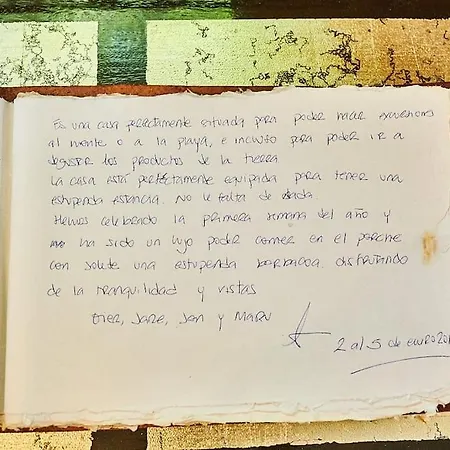 Es una casa perfectamente situada para poder hacer excursiones
al monte o a la playa, e incluso para poder ir a
degustar los productos de la tierra
La casa está perfectamente equipada para tener una
estupenda estancia. No le falta de nada.
Hemos celebrado la primera semana del año y
ha sido un lujo poder comer en el porche
con solete una estupenda barbacoa disfrutando
de la tranquilidad y vistas
Eier, Jare, Jon y Maru
2 al 5 de enero 201